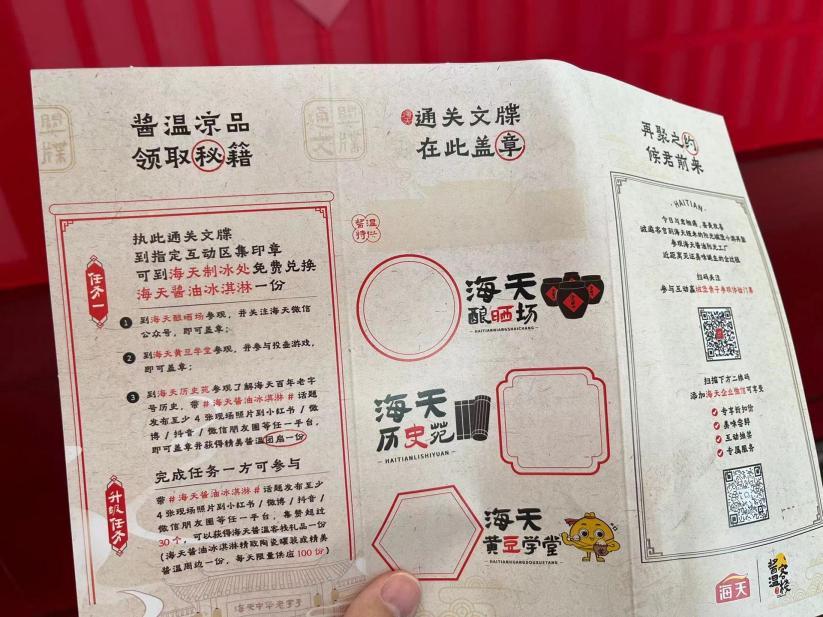 酱温凉品
领取秘籍
执此通关文牒
到指定互动区集印章
可到海天制冰处免费兑换
海天酱油冰淇淋一份
任务一
1 到海天酿晒场参观，并关注海天微信
公众号，即可盖章；
2 到海天黄豆学堂参观，并参与投壶游戏，
即可盖章；
3 到海天历史苑参观了解海天百年老字
号历史，带#海天酱油冰淇淋#话题
发布至少4张现场照片到小红书/微
博/抖音/微信朋友圈等任一平台，
即可盖章并获得精美酱温团扇一份
完成任务一方可参与
升级任务
带#海天酱油冰淇淋#话题发布至少
4张现场照片到小红书/微博/抖音/
微信朋友圈等任一平台，集赞超过
30个，可以获得海天酱温客栈礼品一份
(海天酱油冰淇淋精致陶瓷罐装或精美
酱温周边一份，每天限量供应100份)
海天中华老字号
通关文牒
在此盖章
酱温
特供
海天
酿晒场
HAITIANNIANGSHAICHANG
海天
历史苑
HAITIANLISHIYUAN
海天
黄豆学堂
HAITIANHUANGDOUXUETANG
再聚之约
候君前来
HAITIAN
参观海天酱油阳光工厂
近距离见证美味诞生的全过程
扫码关注
扫描下方二维码
添加海天企业微信可享受
专享折扣价
美味尝鲜
互动抽奖
专属服务
海天
酱温客栈